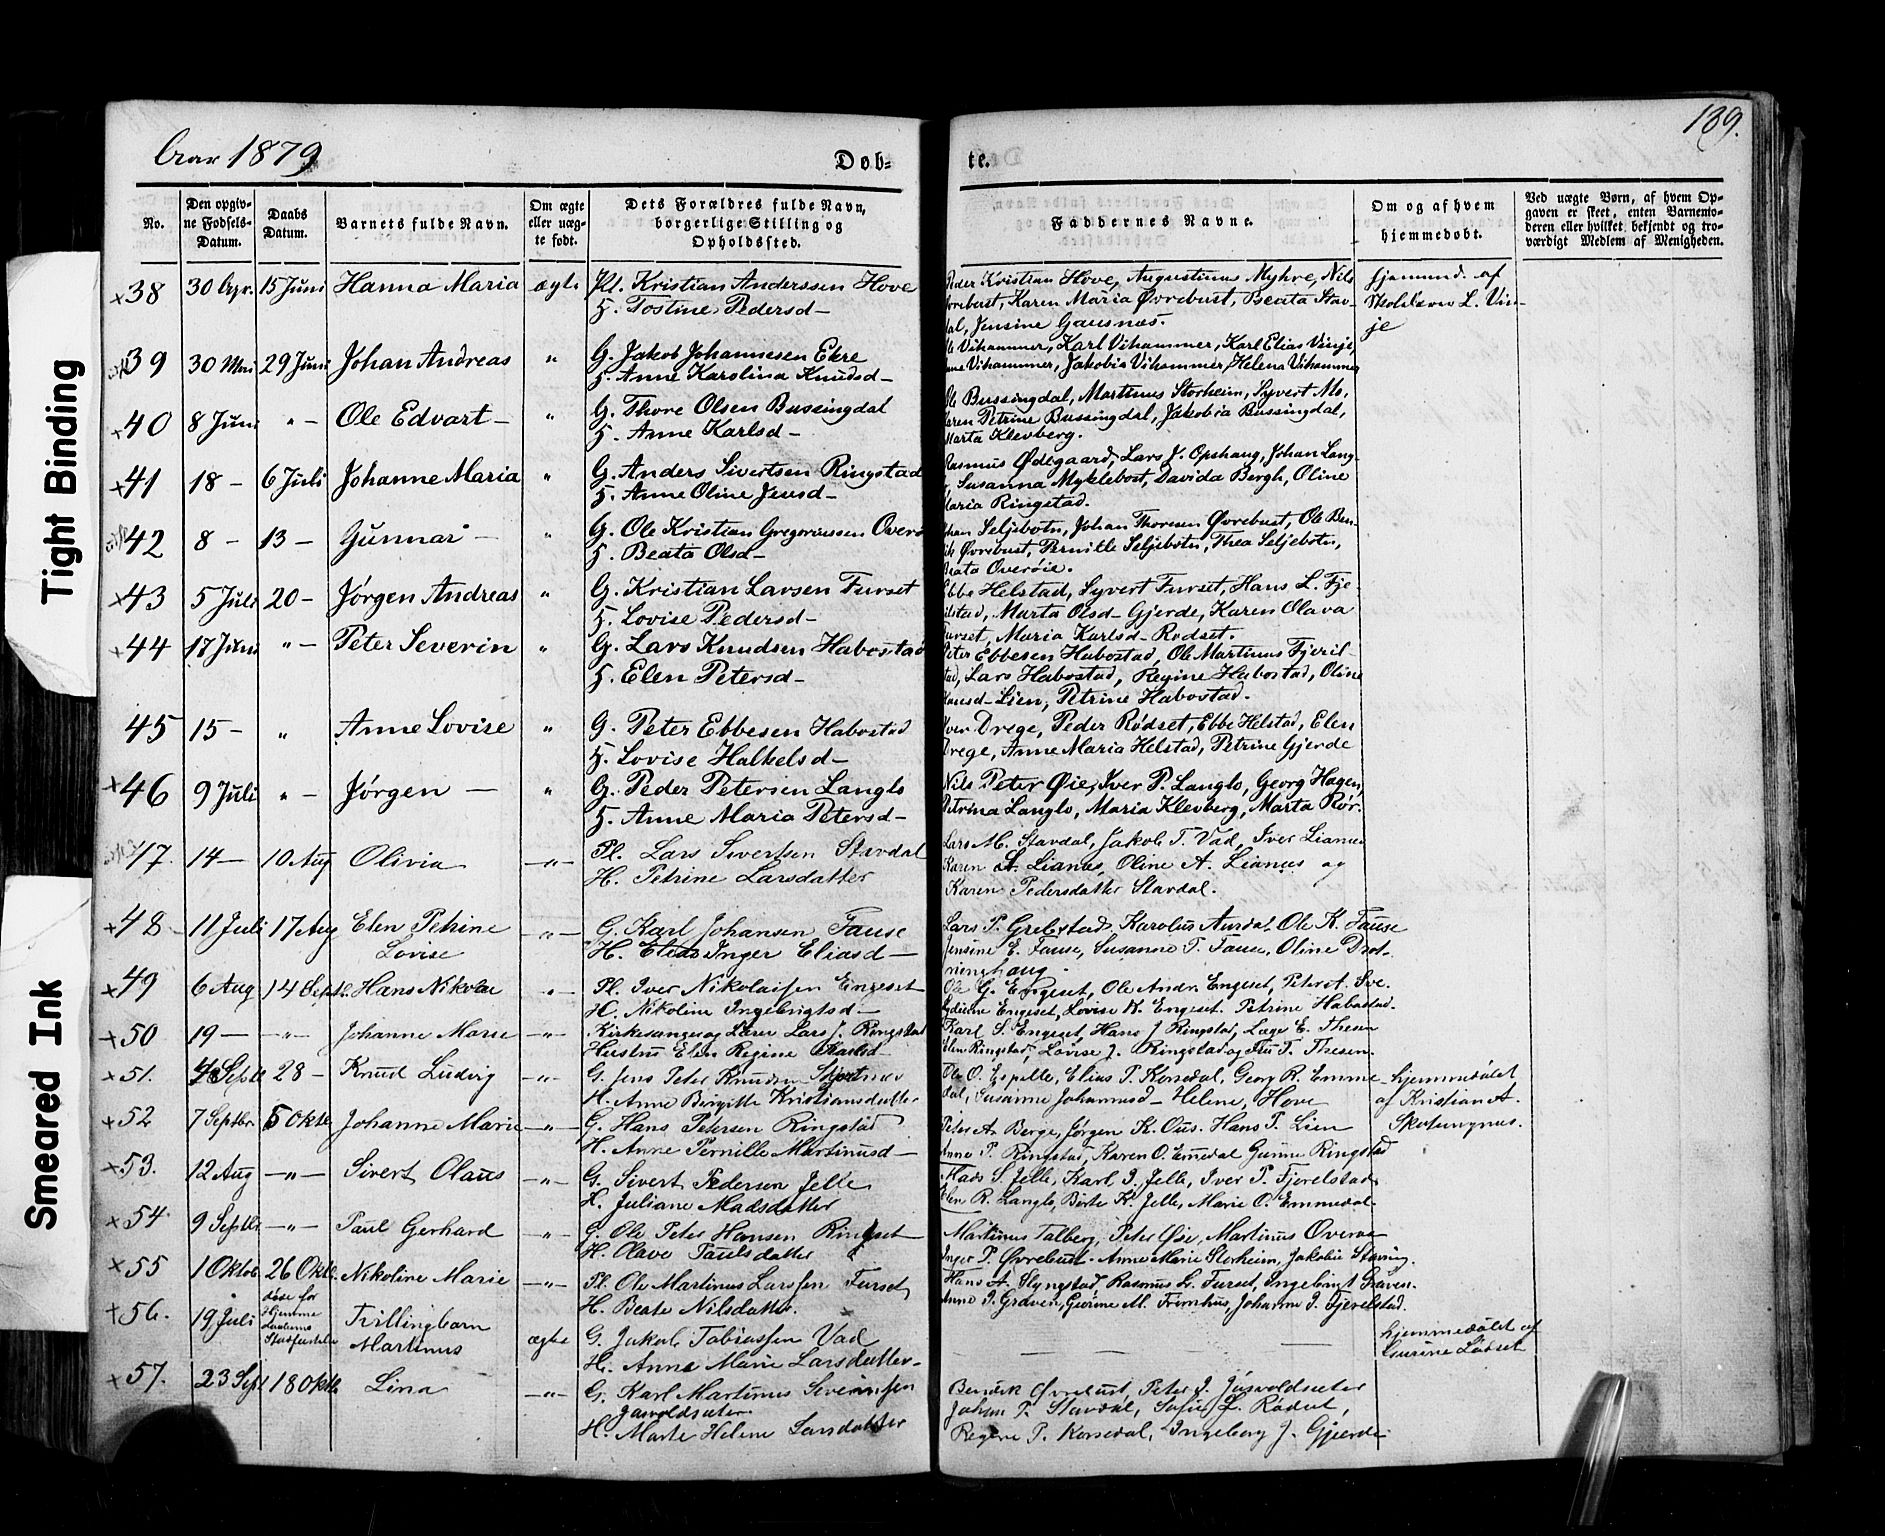 Aar 1879
Døb-
te.
189.
Tight Binding
Smeared Ink
No.
Den opgiv-
ne Fødsels-
Datum.
Daabs
Datum.
Barnets fulde Navn.
Om ægte
eller uæg-
te født.
Dets Forældres fulde Navn,
borgerlige Stilling og
Opholdssted.
Faddernes Navne.
Om og af hvem
hjemmedøbt.
Ved uægte Børn, af hvem Op-
gaven er skeet, enten Barnemo-
deren eller hvilket bekjendt og tro-
værdigt Medlem af Menigheden.
38 30 Apr. 15 Juni Hanna Maria ægte Pl. Kristian Anderssen Hove
H. Tostine Pedersd-
Peder Kristian Hove, Augustinus Myhre, Nils
Øvrebust, Karen Maria Øvrebust, Beata Stav-
dal, Jensine Gausnæs.
hjemmed. af
Skolelærer L. Vin-
je
39 30 Mai 29 Juni Johan Andreas " G. Jakob Johannesen Ekre
H. Anne Karolina Knudsd-
Vihammer, Karl Vihammer, Karl Elias Vinje,
Vihammer, Jakobia Vihammer, Helena Vihammer
40 8 Juni " - Ole Edvart - " G. Thore Olsen Bussingdal
H. Anne Karlsd-
Ole Bussingdal, Martinus Storheim, Syvert Mo,
Karen Petrine Bussingdal, Jakobia Bussingdal,
Marta Klevberg.
41 18 - 6 Juli Johanne Maria " G. Anders Sivertsen Ringstad
H. Anne Oline Jensd-
Rasmus Ødegaard, Lars J. Opshaug, Johan Lang-
Susanna Myklebost, Davida Bergh, Oline
Maria Ringstad.
42 8 - 13 - Gunnar - " G. Ole Kristian Gregoriussen Overø
H. Beata Olsd-
Johan Seljebotn, Johan Thoresen Øvrebust, Ole Ben-
dik Øvrebust, Pernille Seljebotn, Thea Seljebotn,
Beata Overøie.
43 5 Juli 20 - Jørgen Andreas " G. Kristian Larsen Furset
H. Lovise Pedersd-
Ebbe Helstad, Syvert Furset, Hans L. Fje-
rilstad, Marta Olsd- Gjerde, Karen Olava
Furset, Maria Karlsd- Rødset.
44 17 Juni " - Peter Severin " G. Lars Knudsen Habostad
H. Elen Petersd-
Peter Ebbesen Habostad, Ole Martinus Fjeril-
stad, Lars Habostad, Regine Habostad, Oline
Hansd- Lien, Petrine Habostad.
45 15 - " Anne Lovise " G. Peter Ebbesen Habostad
H. Lovise Halkelsd-
Iver Drege, Peder Rødset, Ebbe Helstad, Elen
Drege, Anne Maria Helstad, Petrine Gjerde
46 9 Juli " - Jørgen - " G. Peder Petersen Langlo
H. Anne Maria Petersd-
Nils Peter Øie, Iver P. Langlo, Georg Hagen,
Petrina Langlo, Maria Klevberg, Marta Rør.
47. 14 - 10 Aug Olivia -"- Pl. Lars Sivertsen Stavdal
H. Petrine Larsdatter
Lars M. Stavdal, Jakob T. Vad, Iver Lianes
Karen A. Lianes, Oline A. Lianes og
Karen Pedersdatter Stavdal.
48. 11 Juli 17 Aug Elen Petrine
Lovise -"- G. Karl Johansen Fause
H. Inger Eliasd-
Lars P. Grebstad, Karolus Aurdal, Ole K. Fause
Jensine E. Fause, Susanne T. Fause, Oline Drot-
ninghaug.
49 6 Aug 14 Septb. Hans Nikolai " Pl. Iver Nikolaisen Engeset
H. Nikoline Ingebrigtsd-
Ole G. Engeset, Ole Andr. Engeset, Peter A. Sve.
Lydianne Engeset, Lovise K. Engeset. Petrine Habostad.
50 19 - -"- Johanne Marie -"- Kirkesanger og Lærer Lars J. Ringstad
Hustru Elen Regine Karlsd-
Karl S. Engeset, Hans J Ringstad, Læge E. Thesen
Elen Ringstad, Lovise J. Ringstad og Fru T. Thesen.
51. 4 Septb 28 - Knud Ludvig -"- G. Jens Peter Knudsen
H. Anne Birgitte Kristiansdatter
Ole O. Espelle, Elias P. Korsedal, Georg R. Emme-
dal, Susanne Johannesd- Helene, Hove
hjemmedøbt
af Kristian A.
52 7 Septbr. 5 Oktb. Johanne Marie -"- G. Hans Petersen Ringstad
H. Anne Pernille Martinusd-
Peter A. Berge, Jørgen K. Ous. Hans P. Lien
Anne P. Ringstad, Karen O. Emedal Gurine Ringstad
53. 12 Aug -"- Sivert Olaus -"- G. Sivert Pedersen Jelle
H. Juliane Madsdatter
Mads S. Jelle, Karl J. Jelle, Iver P. Fjerelstad
Elen R. Langlo, Birte K. Jelle, Marie O. Emmedal
54. 9 Septbr -"- Paul Gerhard -"- G. Ole Peter Hansen Ringset
H. Olave Paulsdatter
Martinus Talberg, Peter Øie, Martinus Overøe
Inger P. Øvrebust. Anne Marie Storheim, Jakobie Støving.
55 1 Oktob 26 Oktb. Nikoline Marie -"- Pl. Ole Martinus Larssen Furset
H. Beate Nilsdatter.
Hans A. Slyngstad Rasmus L. Furset, Ingebrigt Graven.
Anne I. Graven, Gurine M. Trimhus, Johanne I. Fjerelstad.
56. 19 Juli døde før
Hjemme
Tvillingbarn
Martinus ægte G. Jakob Tobiassen Vad
H. Anne Marie Larsdatter-
hjemmedøbt af
Gurine Lødset
57. 23 Sept 18 Oktb Lina -"- G. Karl Martinus Severinsen
Jarvoldsæter.
H. Marte Helene Larsdatter
Bendik Øvrebust, Peter J. Jusvoldsæter
Johan P. Stavdal, Sofie L. Rødset,
Regine P. Korsedal, Ingeborg J. Gjerde